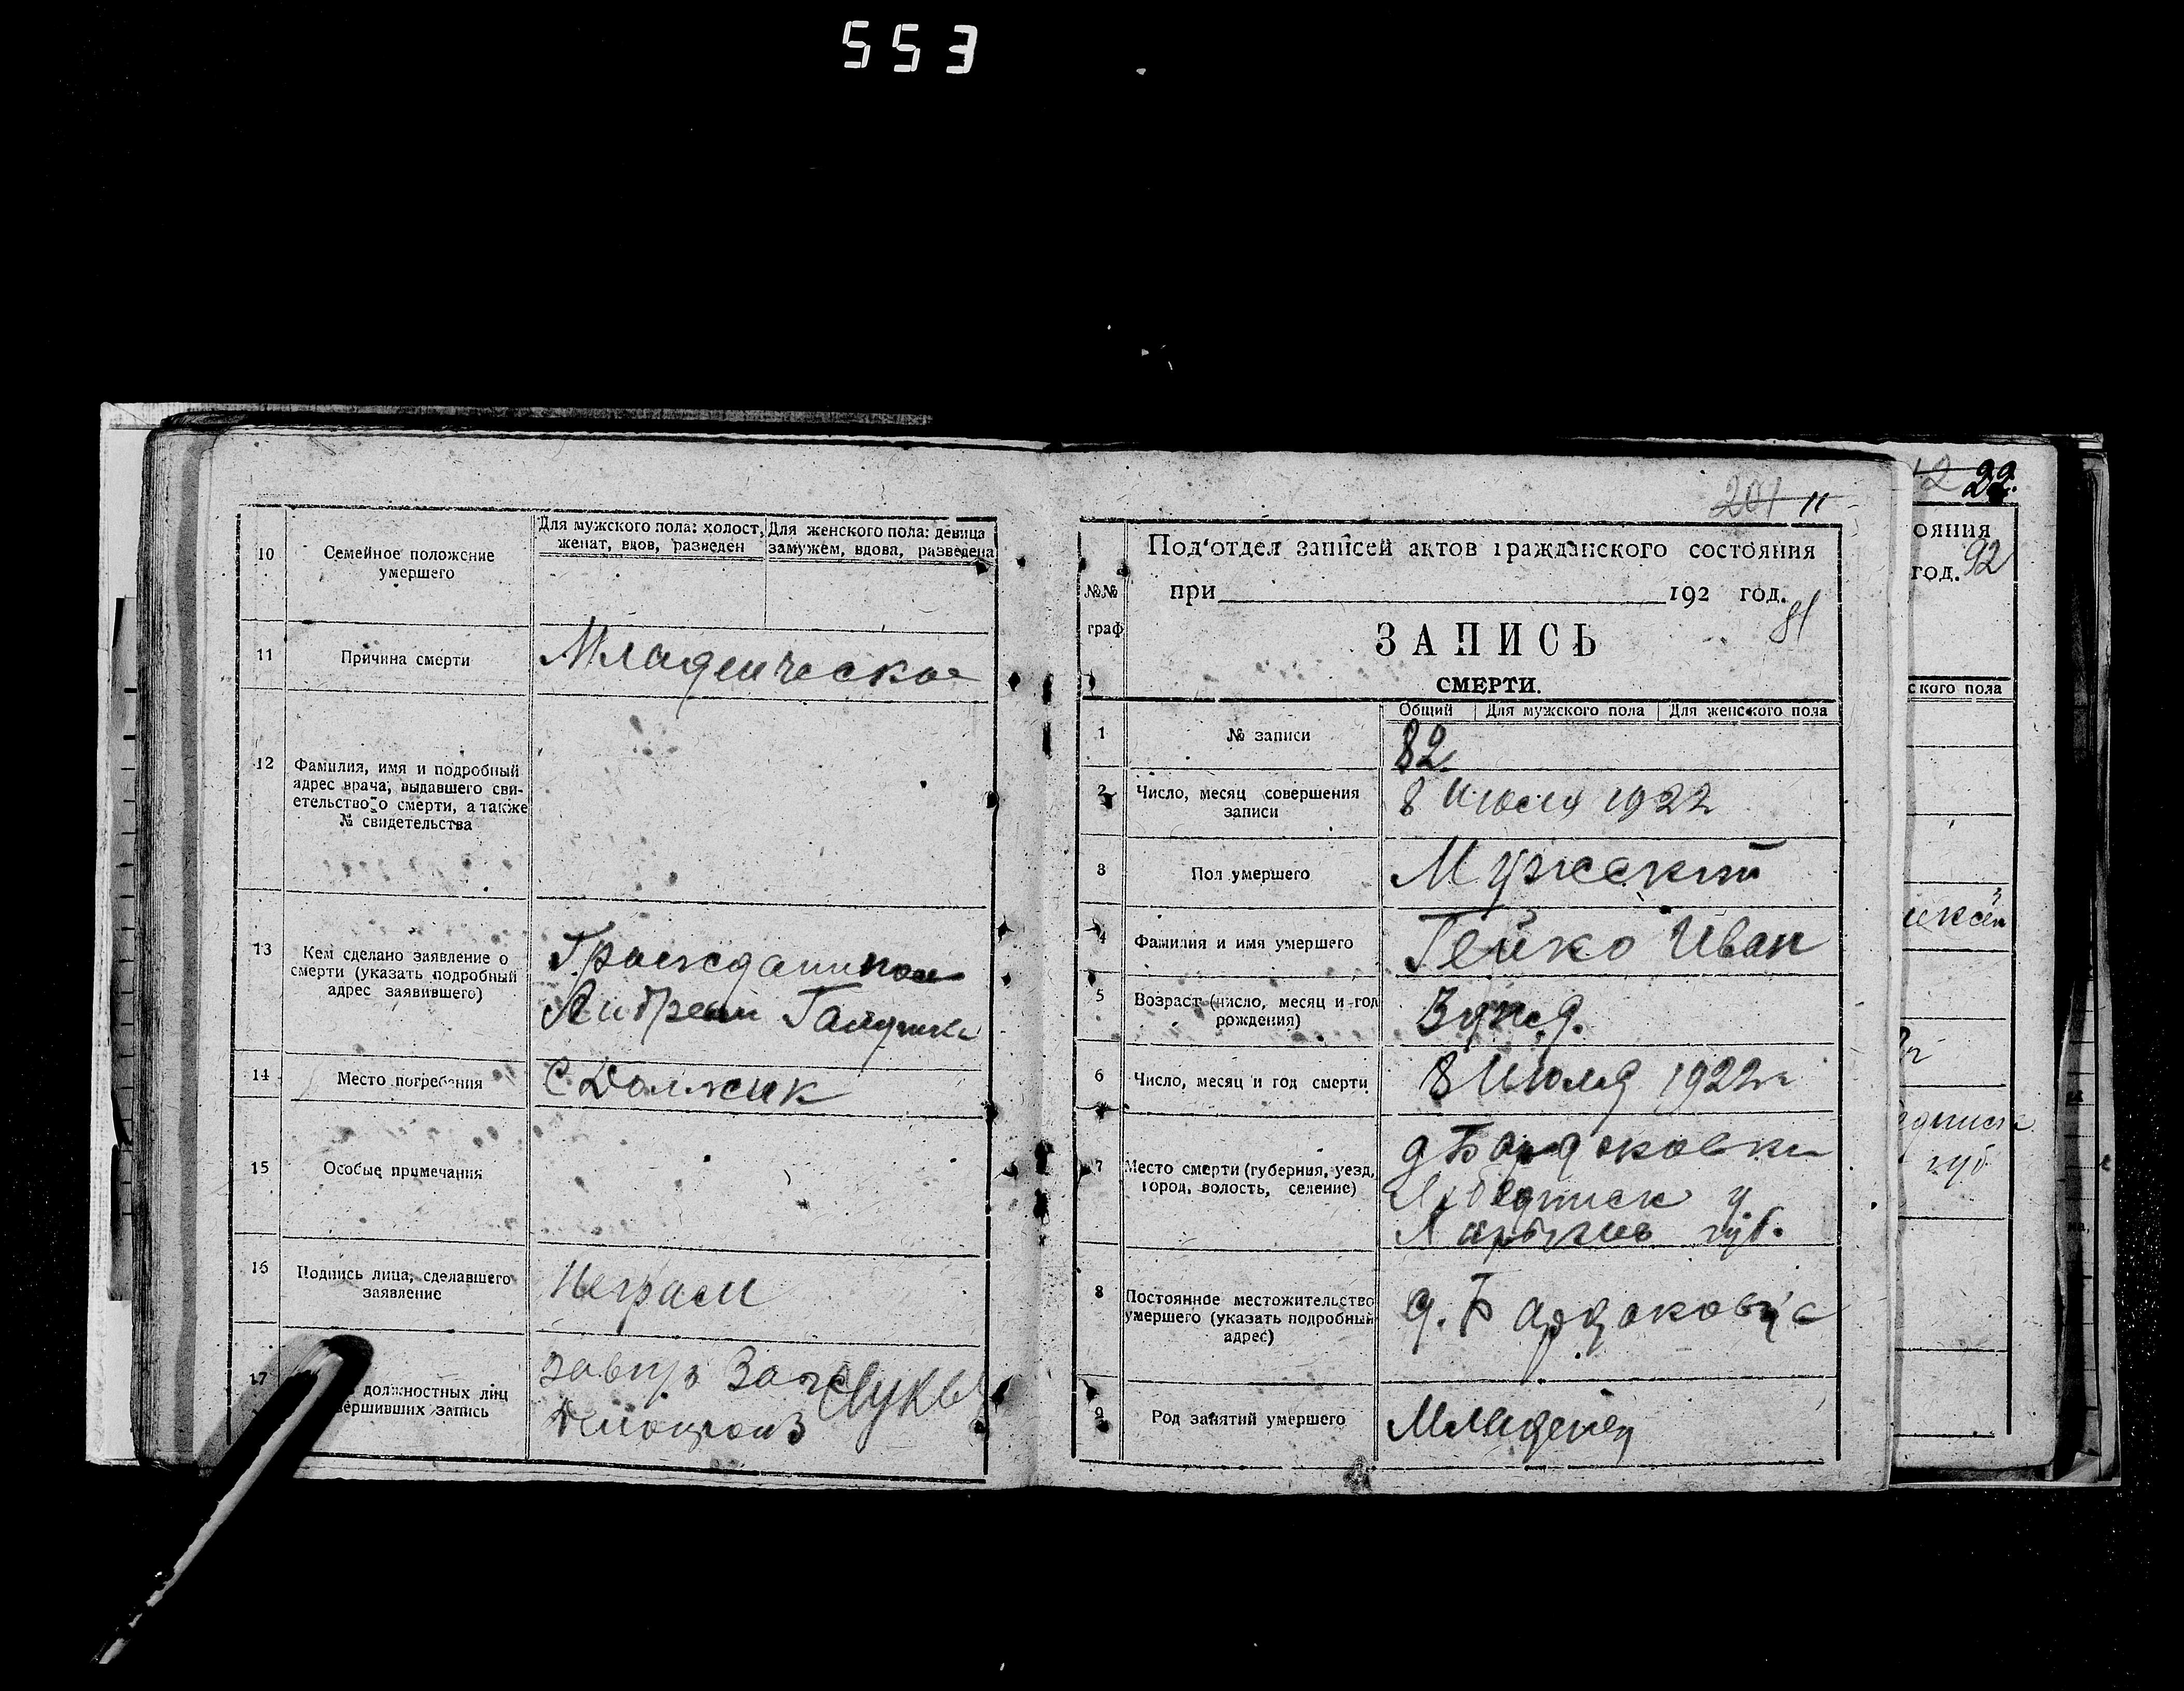 553
10
Семейное положение
умершего
Для мужского пола: холост,
женат, вдов, разведен
Для женского пола: девица
замужем, вдова, разведена
11
Причина смерти
Младенческое
12
Фамилия, имя и подробный
адрес врача, выдавшего сви-
етельство о смерти, а также
№ свидетельства
13
Кем сделано заявление о
смерти (указать подробный
адрес заявившего)
Гражданином
Андреем
14
Место погребения
С Должик
15
Особые примечания
16
Подпись лица, сделавшего
заявление
Неграм
17
должностных лиц
вершивших запись
201 11
№№
граф
Под'отдел записей актов гражданского состояния
при 192 год.
81
ЗАПИСЬ
СМЕРТИ.
Общий
Для мужского пола
Для женского пола
1
№ записи
82
2
Число, месяц совершения
записи
8 Июля 1922
3
Пол умершего
Мужский
4
Фамилия и имя умершего
Гейко Иван
5
Возраст (число, месяц и год
рождения)
6
Число, месяц и год смерти
8 Июля 1922 г
7
Место смерти (губерния, уезд,
город, волость, селение)
у
губ.
8
Постоянное местожительство
умершего (указать подробный
адрес)
д.
9
Род занятий умершего
Младенец
22.
ояния
год.
92
ского пола
губ